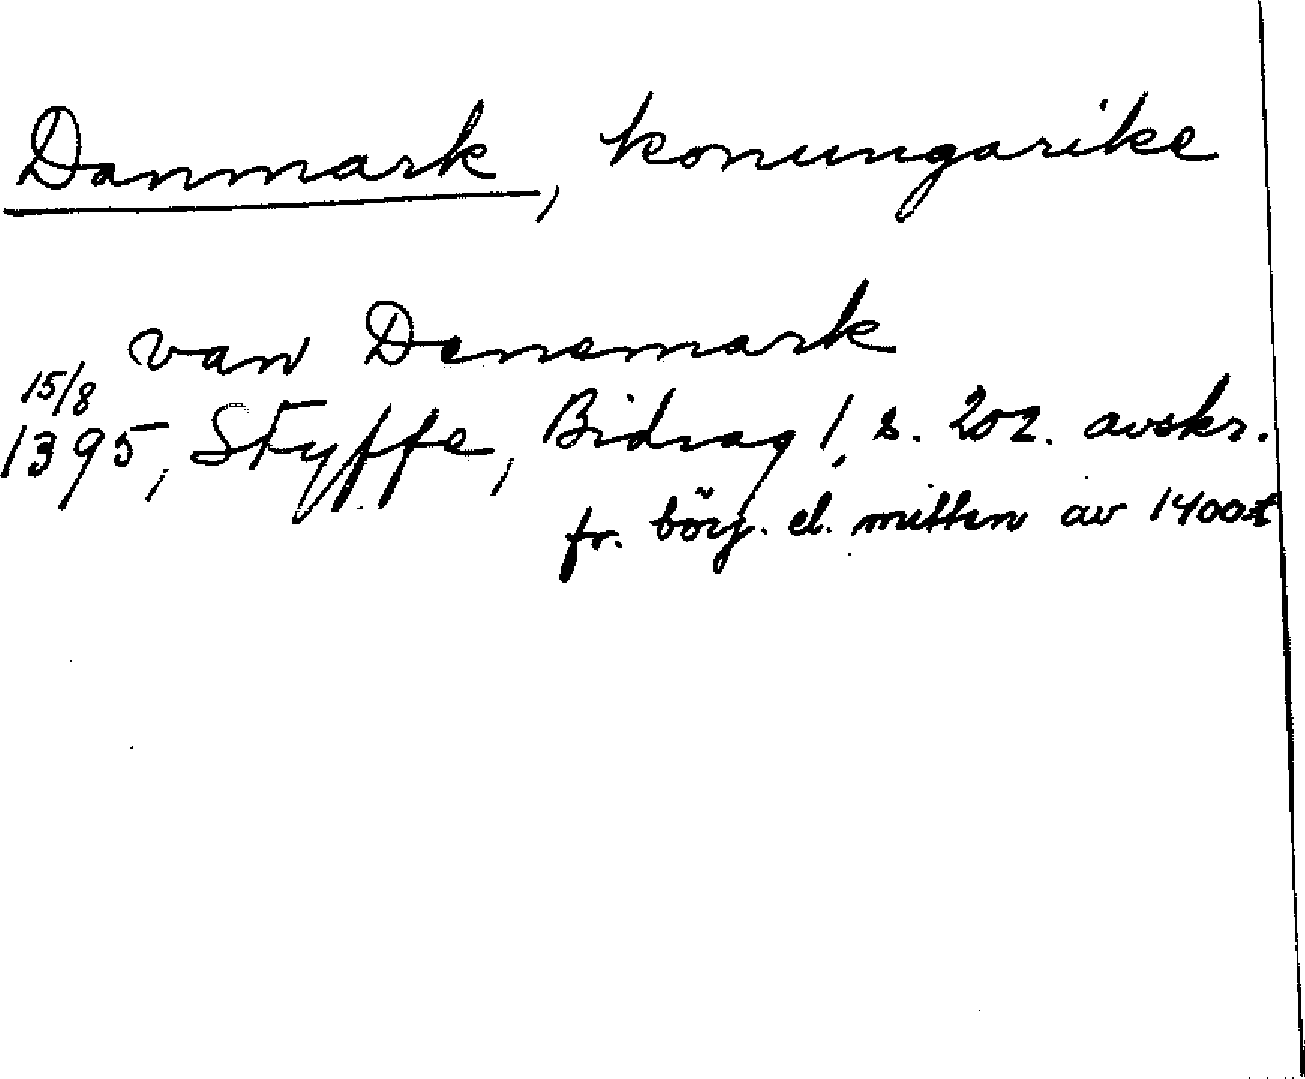 Danmark, konungarike
van Denemark
15/8
1395, Styffe, Bidrag 1, s. 202. avskr.
fr. börj. el. mitten av 1400t